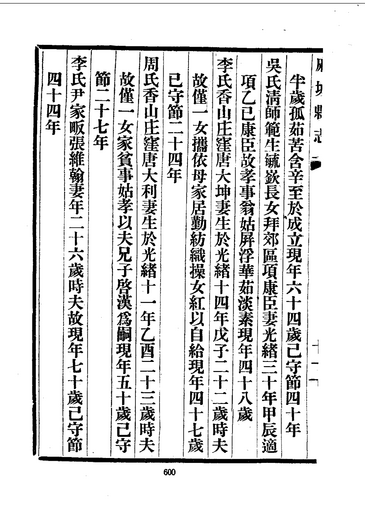 麻城縣志
半歲孤茹苦含辛至於成立現年六十四歲已守節四十年
吳氏清師範生毓嶔長女拜郊區項康臣妻光緒三十年甲辰適
項乙巳康臣故孝事翁姑屏浮華茹淡素現年四十八歲
李氏香山庄窪唐大坤妻生於光緒十四年戊子二十二歲時夫
故僅一女攜依母家居勤紡織操女紅以自給現年四十七歲
已守節二十四年
周氏香山庄窪唐大利妻生於光緒十一年乙酉二十三歲時夫
故僅一女家貧事姑孝以夫兄子啓漢爲嗣現年五十歲已守
節二十七年
李氏尹家畈張維翰妻年二十六歲時夫故現年七十歲已守節
四十四年
600